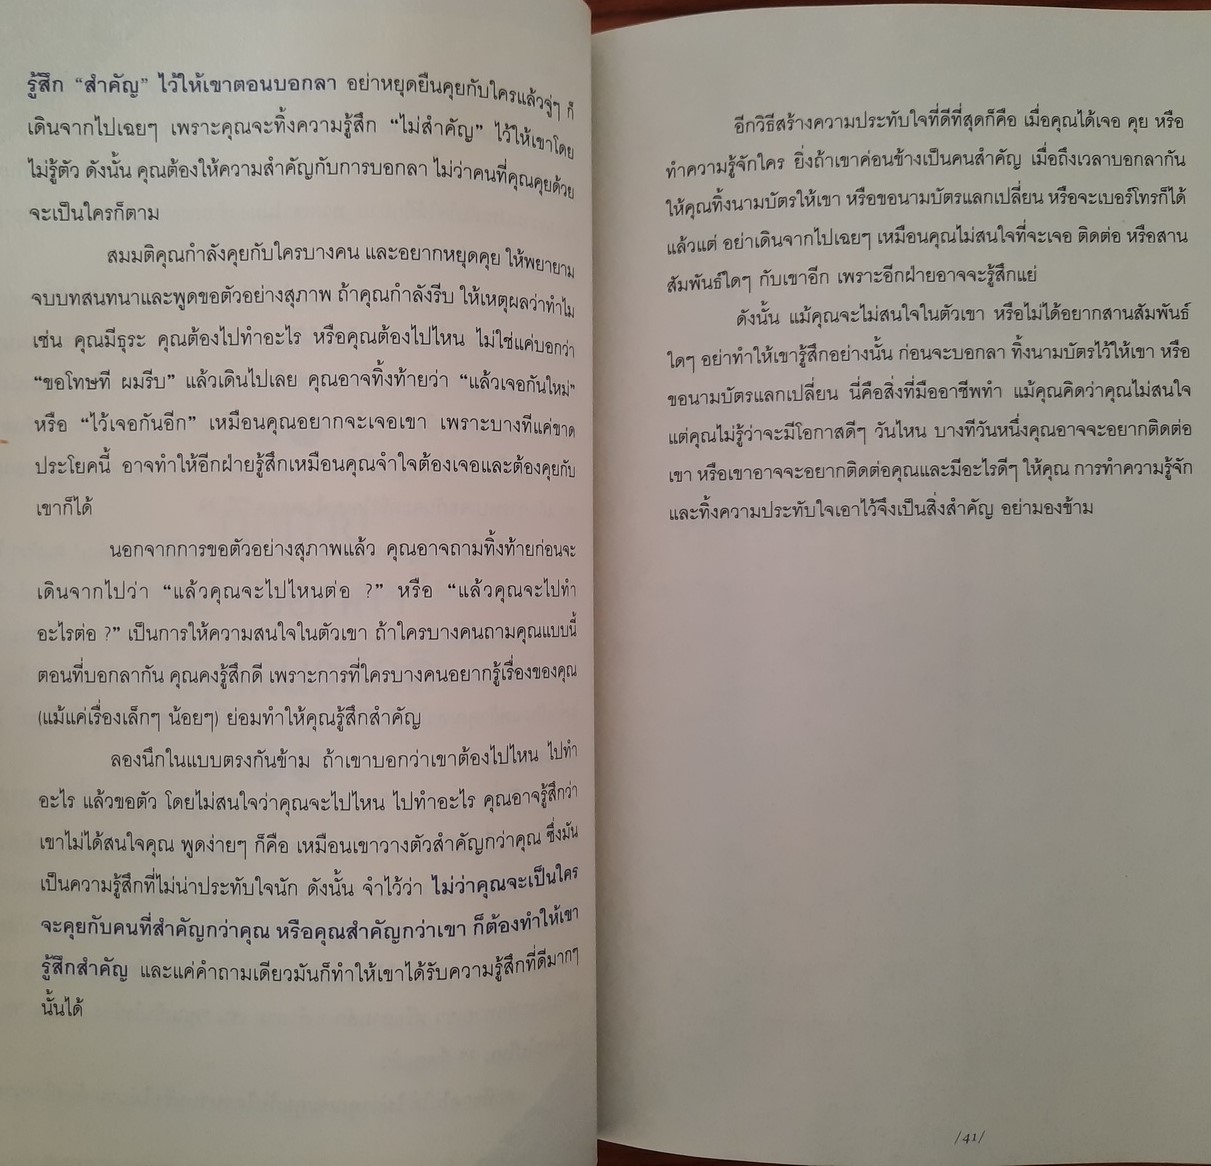 รู้สึก “สำคัญ” ไว้ให้เขาตอนบอกลา อย่าหยุดยืนคุยกับใครแล้วจู่ๆ ก็
เดินจากไปเฉยๆ เพราะคุณจะทิ้งความรู้สึก “ไม่สำคัญ” ไว้ให้เขาโดย
ไม่รู้ตัว ดังนั้น คุณต้องให้ความสำคัญกับการบอกลา ไม่ว่าคนที่คุณคุยด้วย
จะเป็นใครก็ตาม
สมมติคุณกำลังคุยกับใครบางคน และอยากหยุดคุย ให้พยายาม
จบบทสนทนาและพูดขอตัวอย่างสุภาพ ถ้าคุณกำลังรีบ ให้เหตุผลว่าทำไม
เช่น คุณมีธุระ คุณต้องไปทำอะไร หรือคุณต้องไปไหน ไม่ใช่แค่บอกว่า
“ขอโทษที ผมรีบ” แล้วเดินไปเลย คุณอาจทิ้งท้ายว่า “แล้วเจอกันใหม่”
หรือ “ไว้เจอกันอีก” เหมือนคุณอยากจะเจอเขา เพราะบางทีแค่ขาด
ประโยคนี้ อาจทำให้อีกฝ่ายรู้สึกเหมือนคุณจำใจต้องเจอและต้องคุยกับ
เขาก็ได้
นอกจากการขอตัวอย่างสุภาพแล้ว คุณอาจถามทิ้งท้ายก่อนจะ
เดินจากไปว่า “แล้วคุณจะไปไหนต่อ ?” หรือ “แล้วคุณจะไปทำ
อะไรต่อ ?” เป็นการให้ความสนใจในตัวเขา ถ้าใครบางคนถามคุณแบบนี้
ตอนที่บอกลากัน คุณคงรู้สึกดี เพราะการที่ใครบางคนอยากรู้เรื่องของคุณ
(แม้แค่เรื่องเล็กๆ น้อยๆ) ย่อมทำให้คุณรู้สึกสำคัญ
ลองนึกในแบบตรงกันข้าม ถ้าเขาบอกว่าเขาต้องไปไหน ไปทำ
อะไร แล้วขอตัว โดยไม่สนใจว่าคุณจะไปไหน ไปทำอะไร คุณอาจรู้สึกว่า
เขาไม่ได้สนใจคุณ พูดง่ายๆ ก็คือ เหมือนเขาวางตัวสำคัญกว่าคุณ ซึ่งมัน
เป็นความรู้สึกที่ไม่น่าประทับใจนัก ดังนั้น จำไว้ว่า ไม่ว่าคุณจะเป็นใคร
จะคุยกับคนที่สำคัญกว่าคุณ หรือคุณสำคัญกว่าเขา ก็ต้องทำให้เขา
รู้สึกสำคัญ และแค่คำถามเดียวมันก็ทำให้เขาได้รับความรู้สึกที่ดีมากๆ
นั้นได้
อีกวิธีสร้างความประทับใจที่ดีที่สุดก็คือ เมื่อคุณได้เจอ คุย หรือ
ทำความรู้จักใคร ยิ่งถ้าเขาค่อนข้างเป็นคนสำคัญ เมื่อถึงเวลาบอกลากัน
ให้คุณทิ้งนามบัตรให้เขา หรือขอนามบัตรแลกเปลี่ยน หรือจะเบอร์โทรก็ได้
แล้วแต่ อย่าเดินจากไปเฉยๆ เหมือนคุณไม่สนใจที่จะเจอ ติดต่อ หรือสาน
สัมพันธ์ใดๆ กับเขาอีก เพราะอีกฝ่ายอาจจะรู้สึกแย่
ดังนั้น แม้คุณจะไม่สนใจในตัวเขา หรือไม่ได้อยากสานสัมพันธ์
ใดๆ อย่าทำให้เขารู้สึกอย่างนั้น ก่อนจะบอกลา ทิ้งนามบัตรไว้ให้เขา หรือ
ขอนามบัตรแลกเปลี่ยน นี่คือสิ่งที่มืออาชีพทำ แม้คุณคิดว่าคุณไม่สนใจ
แต่คุณไม่รู้ว่าจะมีโอกาสดีๆ วันไหน บางทีวันหนึ่งคุณอาจจะอยากติดต่อ
เขา หรือเขาอาจจะอยากติดต่อคุณและมีอะไรดีๆ ให้คุณ การทำความรู้จัก
และทิ้งความประทับใจเอาไว้จึงเป็นสิ่งสำคัญ อย่ามองข้าม
/41/